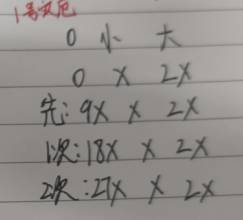 1号灾厄
0 小 大
0 X 2X
先: 9X X 2X
1次: 18X X 2X
2次: 27X X 2X